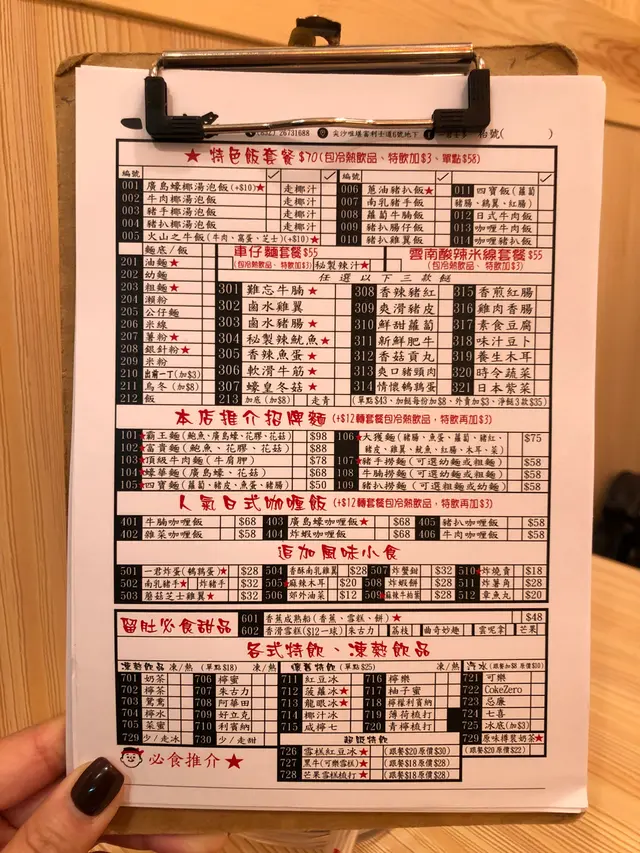 26731688 尖沙咀堪富利士道6號地下 枱號( )
★ 特色飯套餐 $70(包冷熱飲品、特飲加$3、單點$58)
編號 編號
001 廣島蠔椰湯泡飯(+$10)★ 走椰汁 006 蔥油豬扒飯★ 011 四寶飯(蘿蔔
002 牛肉椰湯泡飯 走椰汁 007 南乳豬手飯 豬腸、鷄翼、紅腸)
003 豬手椰湯泡飯 走椰汁 008 蘿蔔牛腩飯 012 日式牛肉飯
004 豬扒椰湯泡飯 走椰汁 009 豬扒腸仔飯 013 咖喱牛肉飯
005 火山之牛飯(牛肉、窩蛋、芝士)(+$10)★ 010 豬扒雞翼飯 014 咖喱豬扒飯
麵底/飯 車仔麵套餐$55 雲南酸辣米線套餐$55
(包冷熱飲品、特飲加$3) 秘製辣汁★ (包冷熱飲品、特飲加$3)
任選以下三款餸
201 油麵★
202 幼麵
203 粗麵★
204 瀨粉
205 公仔麵
206 米線
207 薯粉★
208 銀針粉★
209 米粉
210 出前一丁(加$3)
211 烏冬(加$8)
212 飯
301 難忘牛腩★ 308 香辣豬紅 315 香煎紅腸
302 鹵水雞翼 309 爽滑豬皮 316 雞肉香腸
303 鹵水豬腸★ 310 鮮甜蘿蔔 317 素食豆腐
304 秘製辣魷魚★ 311 新鮮肥牛 318 味汁豆卜
305 香辣魚蛋★ 312 香菇貢丸 319 養生木耳
306 軟滑牛筋★ 313 爽口豬頸肉 320 時令蔬菜
307 蠔皇冬菇★ 314 情懷鵪鶉蛋 321 日本紫菜
213 加底(加$8) 214 走青 (單點$43、加餸每份加$8、外賣加$3、淨餸3款$35)
本店推介招牌麵 (+$12轉套餐包冷熱飲品、特飲再加$3)
101★霸王麵(鮑魚、廣島蠔、花膠、花菇) $98 106★大獲麵(豬腸、魚蛋、蘿蔔、豬紅、 $75
102★富貴麵(鮑魚、花膠、花菇) $88 豬皮、雞翼、魷魚、紅腸、木耳、菜)
103★頂級牛肉麵(牛肩胛) $78 107★豬手撈麵(可選幼麵或粗麵) $58
104★蠔華麵(廣島蠔、花菇) $68 108 牛腩撈麵(可選幼麵或粗麵) $58
105★四寶麵(蘿蔔、豬皮、魚蛋、豬腸) $50 109 豬扒撈麵(可選粗麵或幼麵) $58
人氣日式咖喱飯 (+$12轉套餐包冷熱飲品、特飲再加$3)
401 牛腩咖喱飯 $68 403 廣島蠔咖喱飯★ $68 405 豬扒咖喱飯 $58
402 雜菜咖喱飯 $58 404 炸蝦咖喱飯 $68 406 牛肉咖喱飯 $58
追加風味小食
501 一君炸蛋(鵪鶉蛋)★ $28 504 香酥南乳雞翼 $28 507 炸蟹鉗 $32 510★炸燒賣 $18
502 南乳豬手★ 炸豬手 $32 505★麻辣木耳 $20 508 炸蝦餅 $28 511 炸薯角 $28
503 蘑菇芝士雞翼★ $32 506 郊外油菜 $12 509★麻辣牛柏葉 $28 512 章魚丸 $20
留肚必食甜品 601 香蕉成熟船(香蕉、雪糕、餅)★ $48
602 香滑雪糕($12一球) 朱古力 荔枝 曲奇妙趣 雲呢拿 芒果
各式特飲、凍熱飲品
凍熱飲品 凍/熱(單點$18) 凍/熱 懷舊特飲(單點$25) 凍/熱 汽水(跟餐加$8 原價$10)
701 奶茶 706 檸蜜 711 紅豆冰★ 716 檸樂 721 可樂
702 檸茶 707 朱古力 712 菠蘿冰★ 717 柚子蜜 722 CokeZero
703 鴛鴦 708 阿華田 713 龍眼冰★ 718 檸檬利賓納 723 忌廉
704 檸水 709 好立克 714 椰汁冰 719 薄荷梳打 724 七喜
705 菜蜜 710 利賓納 715 咸檸七 720 青檸梳打 725 冰底(加$3)
729 少/走冰 730 少/走甜 超班特飲 729 原味樽裝奶茶★
726 雪糕紅豆冰★ (跟餐$20原價$30) (跟餐$20原價$22)
727 黑牛(可樂雪糕)★ (跟餐$18原價$28)
728 芒果雪糕梳打★ (跟餐$18原價$28)
必食推介★